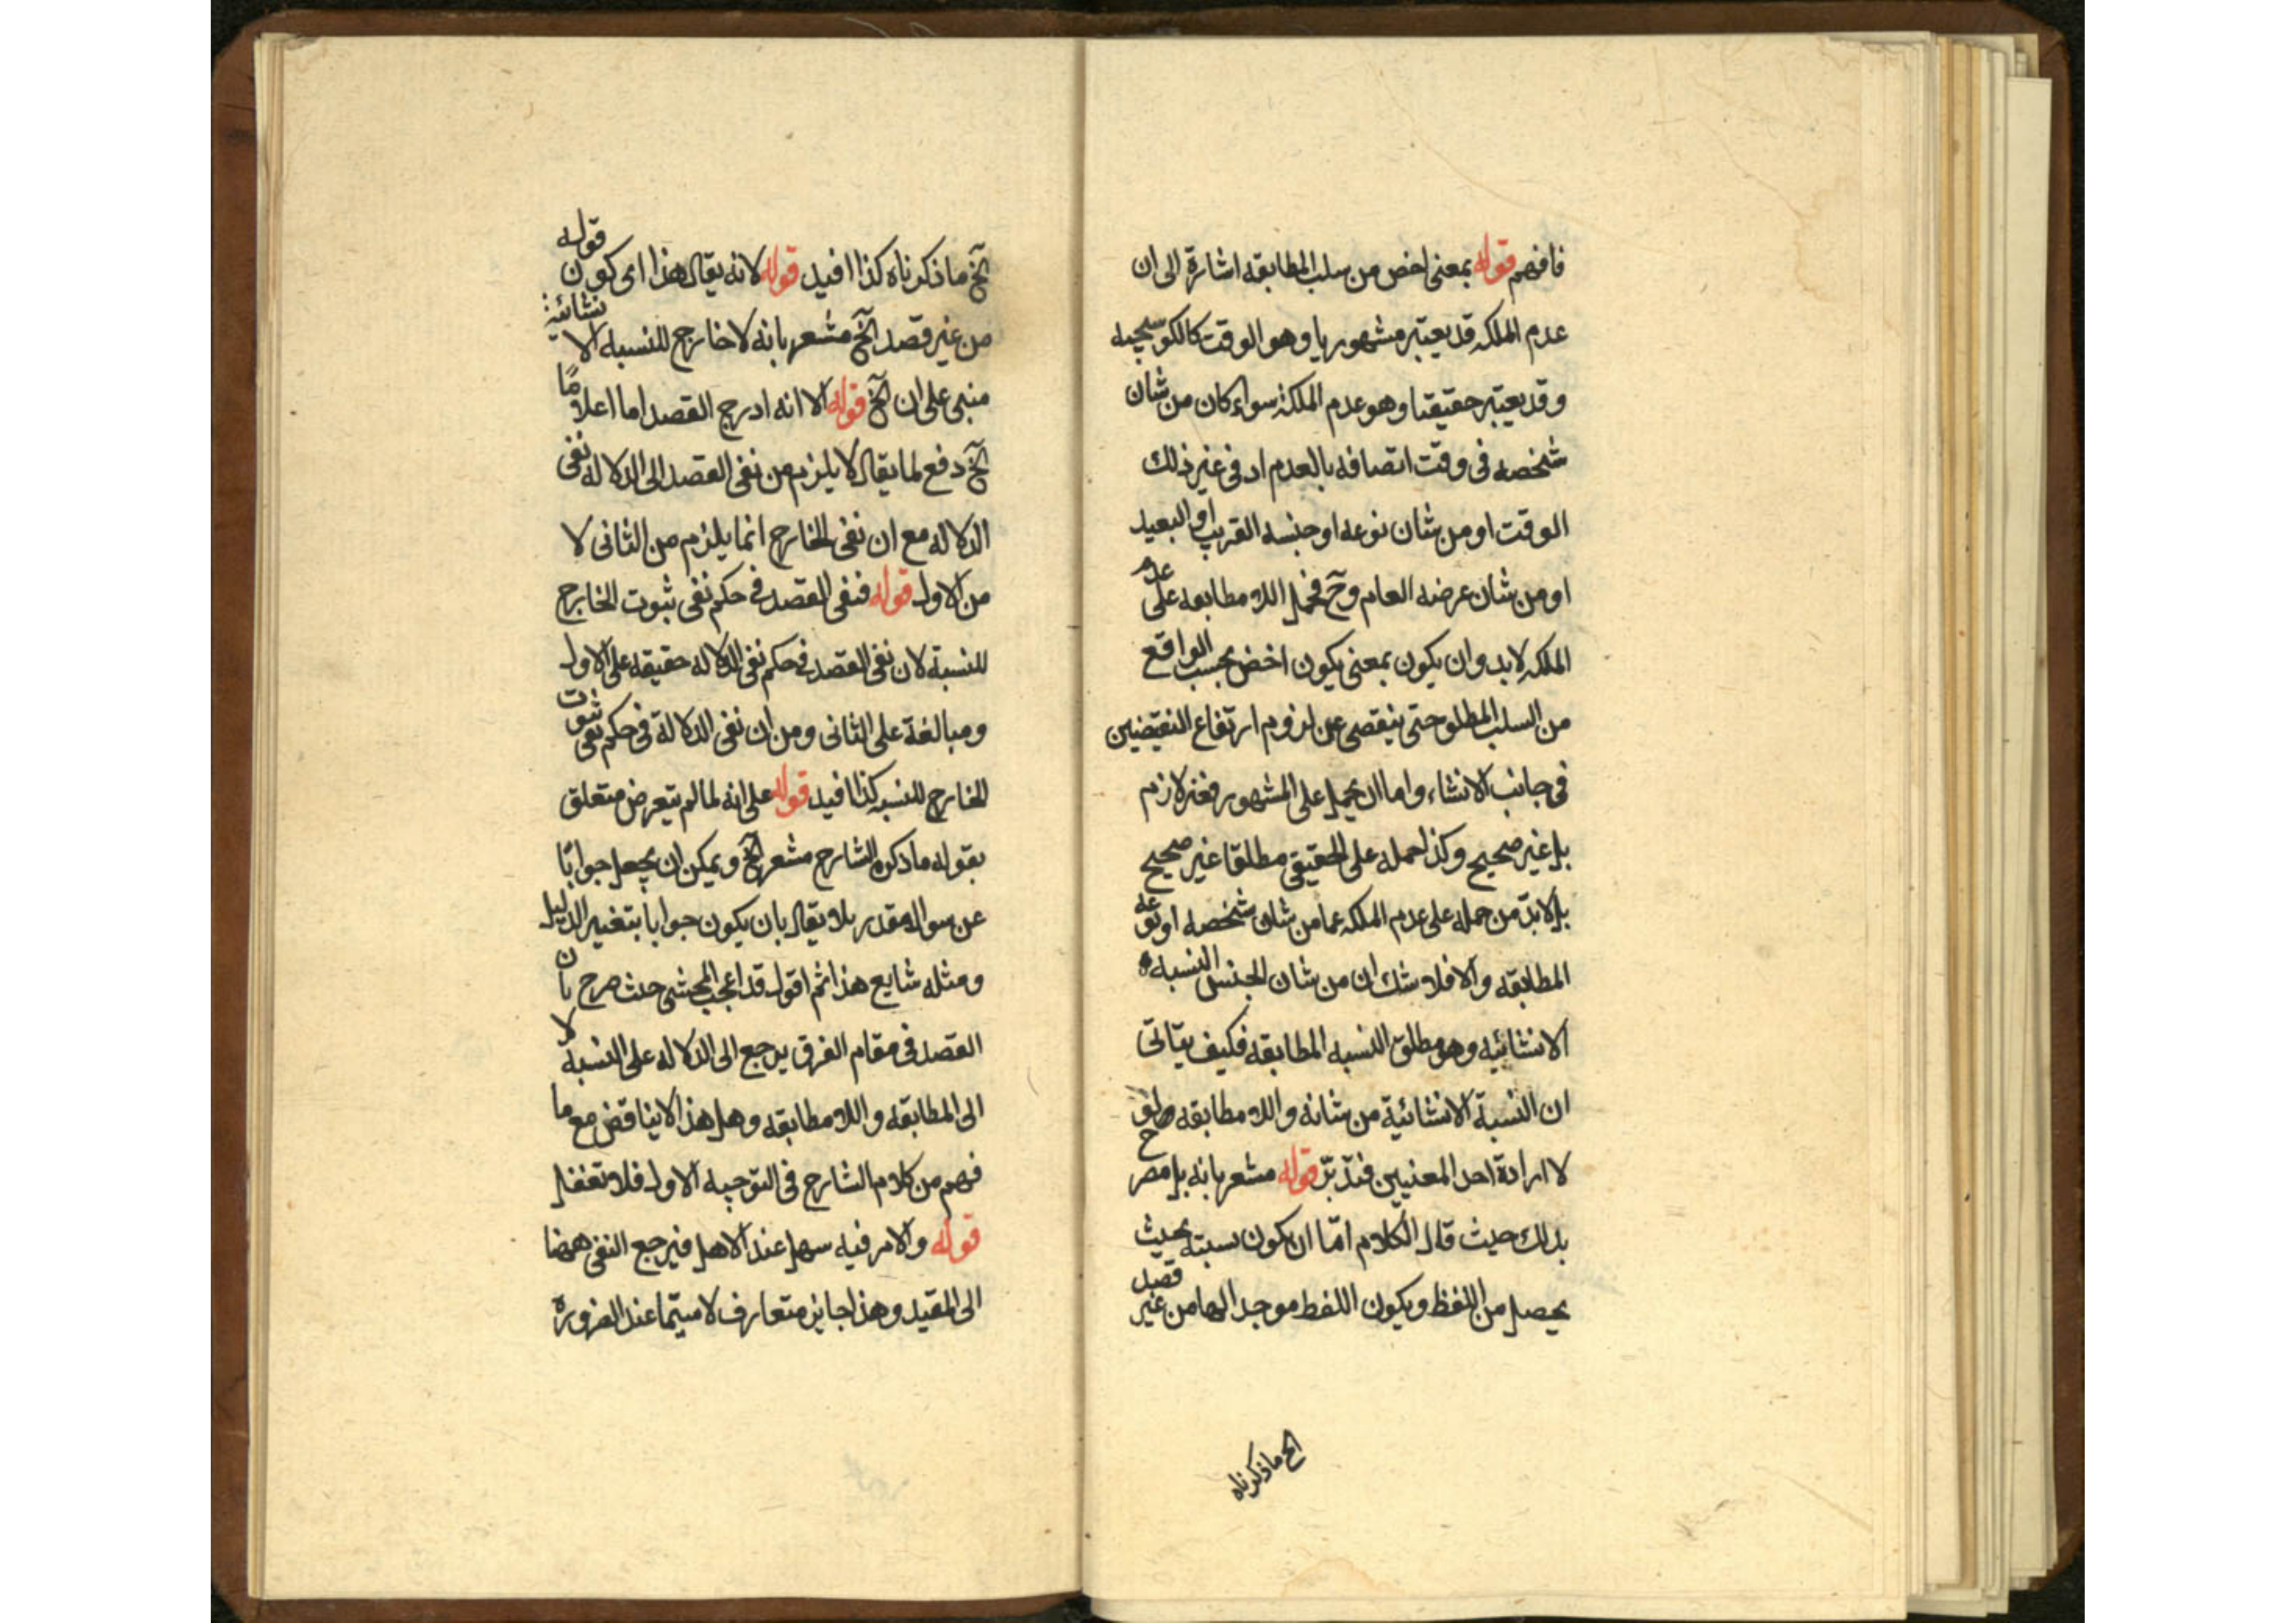 فافهم قوله بمعنى اخص من سلب المطابقه اشارة الى ان
عدم الملكه قد يعتبر مشهوريا وهو الوقت كالكوسجيه
وقد يعتبر حقيقتا وهو عدم الملكة سواء كان من شان
شخصه فى وقت اتصافه بالعدم او فى غير ذلك
الوقت او من شان نوعه او جنسه القريب او البعيد
او من شان عرضه العام وح فحمل اللا مطابقه على عدم
الملكه لابد وان يكون بمعنى يكون اخص بحسب الواقع
من السلب المطلق حتى ينقصى عن لزوم ارتفاع النقيضين
فى جانب الانشاء واما ان يحمل على المشهور فغير لازم
بل غير صحيح وكذا حمله على الحقيقى مطلقا غير صحيح
بل لابد من حمله على عدم الملكه عما من شان شخصه او نوعه
المطابقه والا فلا شك ان من شان الجنس النسبه
الانشائيه وهو مطلق النسبه المطابقه فكيف يتاتى
ان النسبة الانشائية من شانه واللا مطابقه
لا ارادة احد المعنيين فتدبر قوله مشعر بانه بل مصرح
بذلك حيث قال الكلام اما ان يكون نسبته بحيث
يحصل من اللفظ ويكون اللفظ موجدا لها من غير قصد
الخ ما ذكرناه
الخ ما ذكرناه كذا افيد قوله لانه يقال هذا اى كون قوله
من غير قصد الخ مشعر بانه لا خارج للنسبه الانشائية
مبنى على ان الخ قوله الا انه ادرج القصد اما اعلاما
الخ دفع لما يقال لا يلزم من نفى القصد الى الدلاله نفى
الدلاله مع ان نفى الخارج انما يلزم من الثانى لا
من الاول قوله فنفى القصد فى حكم نفى ثبوت الخارج
للنسبة لان نفى القصد فى حكم نفى الدلاله حقيقه على الاول
ومبالغة على الثانى ومن ان نفى الدلالة فى حكم نفى ثبوت
الخارج للنسبه كذا افيد قوله على انه لما لم يتعرض متعلق
بقوله ما ذكره الشارح مشعر الخ ويمكن ان يجعل جوابا
عن سوال مقدر بلا يقال بان يكون جوابا بتغيير الدليل
ومثله شايع هذا ثم اقول قد اعجب المحشى حيث صرح بان
القصد فى مقام الفرق يرجع الى الدلاله على النسبة لا
الى المطابقه واللا مطابقه وهل هذا الا يناقض مع ما
فهم من كلام الشارح فى التوجيه الاول فلا تغفل
قوله والامر فيه سهل عند الاهل فيرجع النفى ههنا
الى المقيد وهذا جايز متعارف لاسيما عند الضرورة